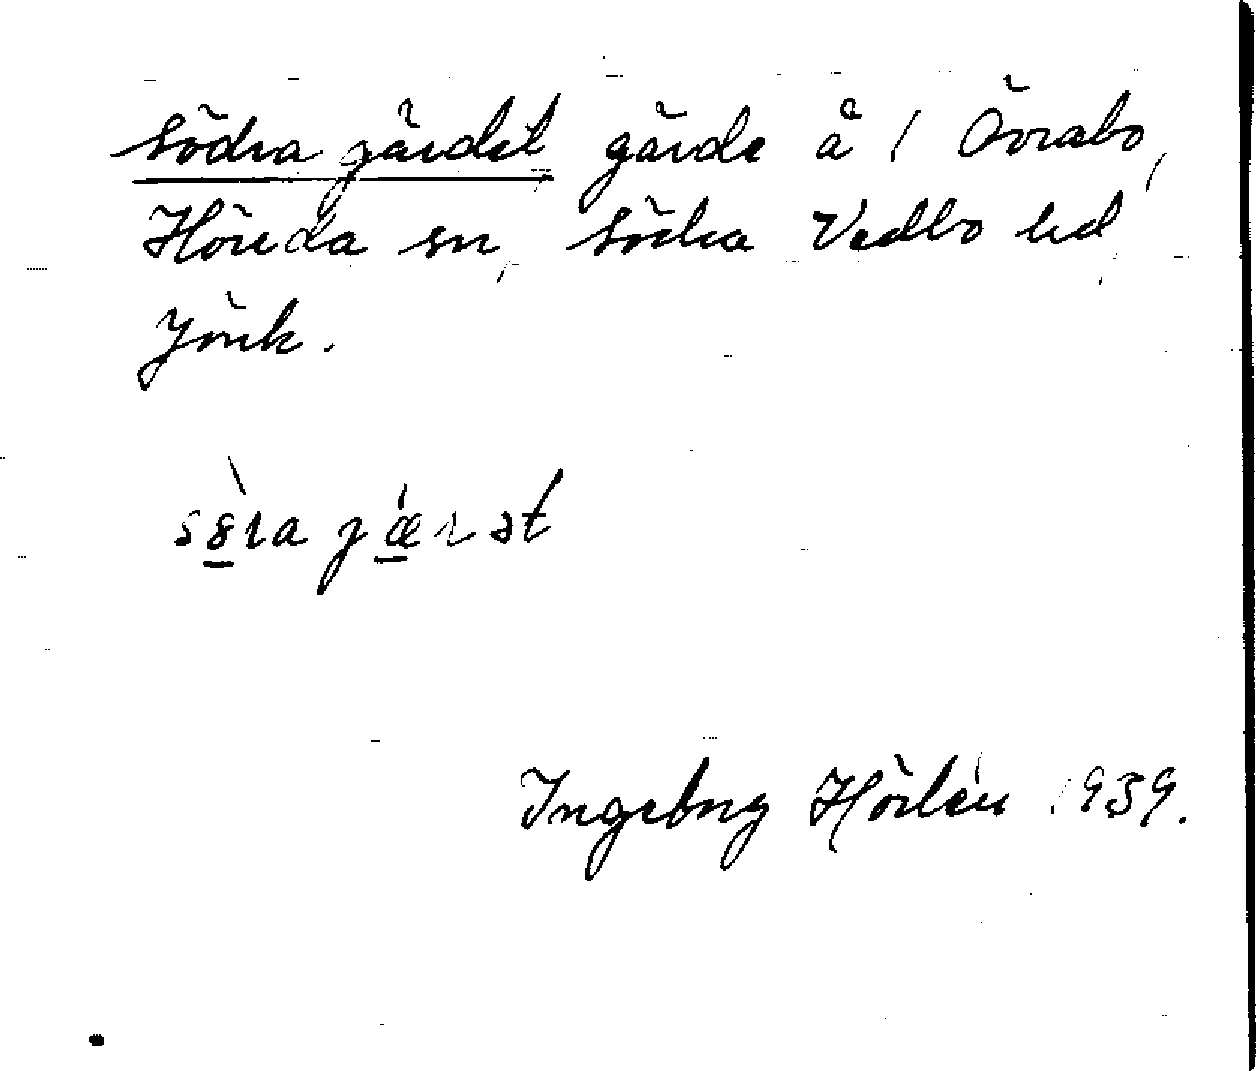 Södra gärdet gärde å 1 Övrabo,
Höreda sn, Södra Vedbo hd,
Jönk.
sɵ̀ra jǽrət
Ingeborg Hörlén 1939.